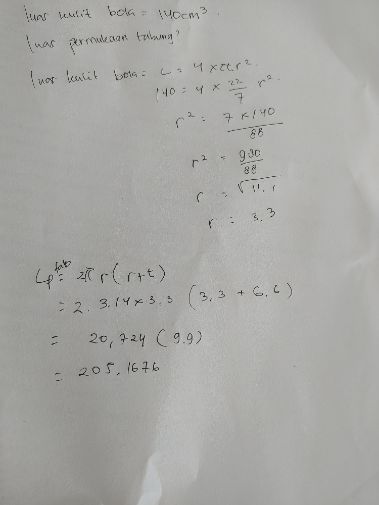 luas kulit bola = 140cm³
luas permukaan tabung?
luas kulit bola = L = 4 × π r².
140 = 4 × 22/7 r².
r² = 7 × 140 / 88
r² = 980 / 88
r = √11,1
r = 3,3
Lp tab = 2π r (r+t)
= 2. 3.14 × 3.3 (3,3 + 6,6)
= 20,724 (9.9)
= 205,1676